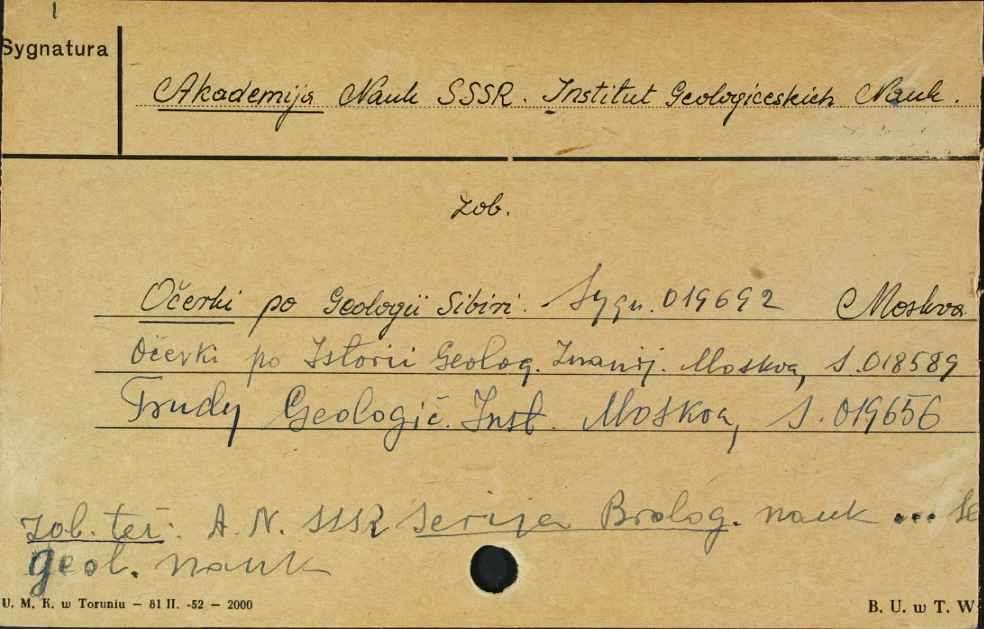 Sygnatura
Akademija Nauk SSSR. Institut Geologiceskich Nauk.
zob.
Očerki po Geologii Sibiri. Sygn. 019692 Moskva
Očerki po Istorii Geolog. Znanij. Moskva, S. 018589
Trudy Geologič. Inst. Moskva, S. 019656
zob. też: A. N. SSSR Serija Biolog. nauk ... Se
geol. nauk
U. M. K. w Toruniu — 81 II. -52 — 2000
B. U. w T. W